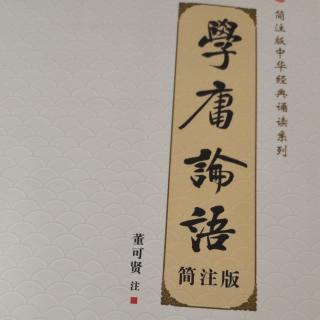 简注版中华经典诵读系列
學庸論語
简注版
董可贤 注